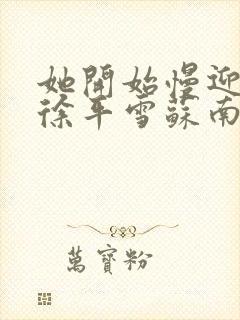 她開始慢迎
徐平雪蘇南
萬寶粉